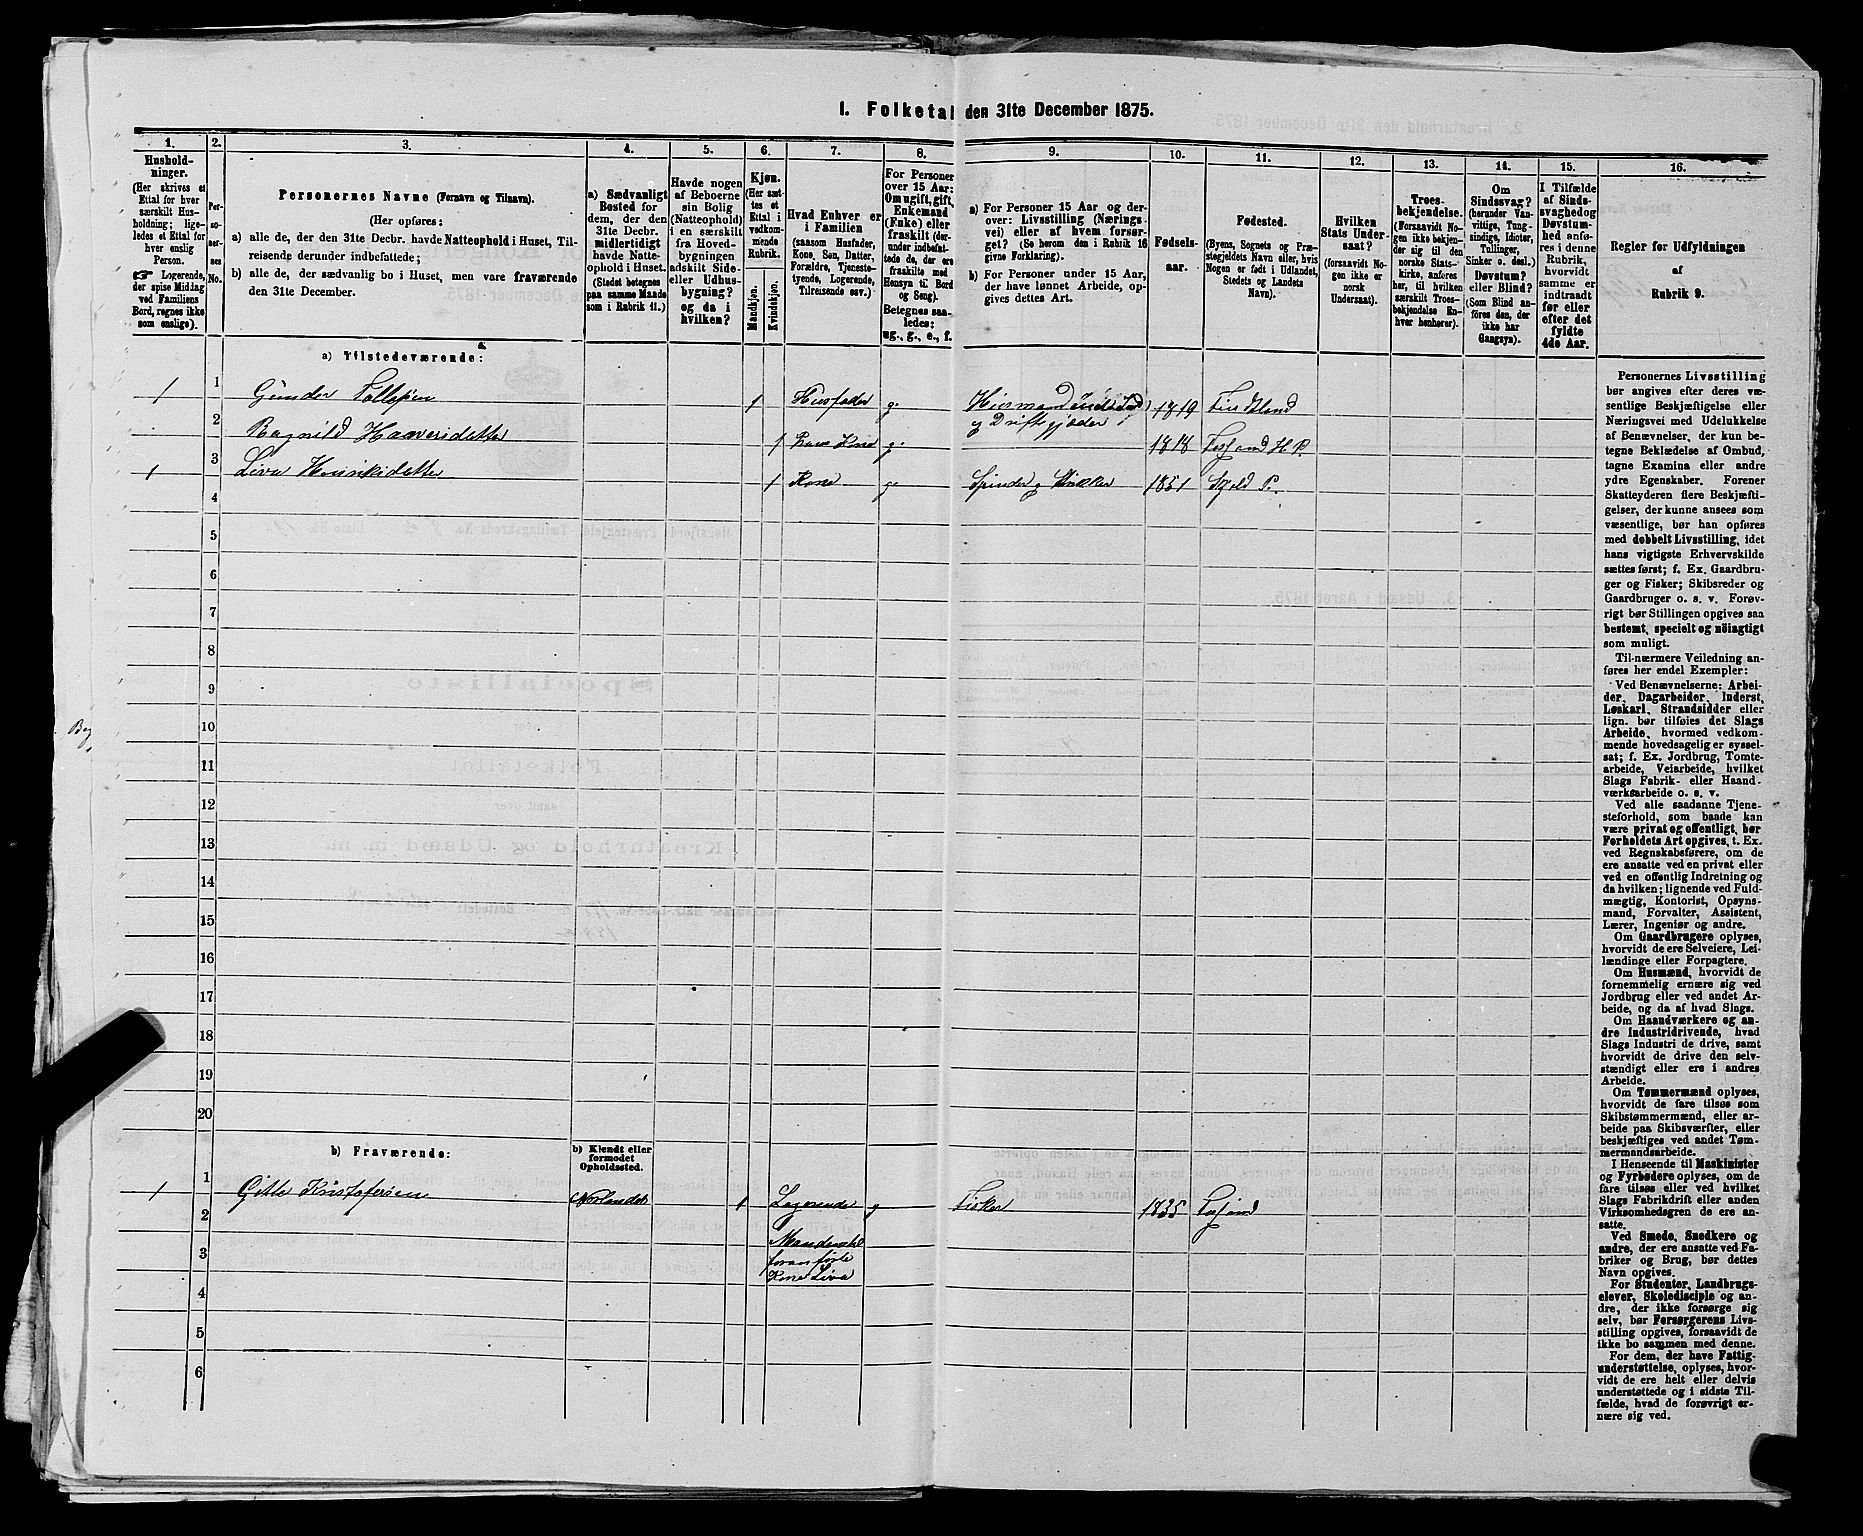 1. Folketal den 31te December 1875.
1.
Hushold-
ninger.
(Her skrives et
Ettal for hver
særskilt Hus-
holdning; lige-
ledes et Ettal for
hver enslig
Person.
Logerende,
der spise Middag
ved Familiens
Bord, regnes ikke
som enslige).
2.
Per-
so-
ner-
nes
No.
3.
Personernes Navne (Fornavn og Tilnavn).
(Her opføres:
a) alle de, der den 31te Decbr. havde Natteophold i Huset, Til-
reisende derunder indbefattede;
b) alle de, der sædvanlig bo i Huset, men vare fraværende
den 31te December.
4.
a) Sædvanligt
Bosted for
dem, der den
31te Decbr.
midlertidigt
havde Natte-
ophold i Huset.
(Stedet betegnes
paa samme Maade
som i Rubrik 11.)
5.
Havde nogen
af Beboerne
sin Bolig
(Natteophold)
i en særskilt
fra Hoved-
bygningen
adskilt Side-
eller Udhus-
bygning?
og da i
hvilken?
6.
Kjøn.
(Her sæt-
tes et
Ettal i
vedkom-
mende
Rubrik.
Mandkjøn.
Kvindekjøn.
7.
Hvad Enhver er
i Familien
(saasom Husfader,
Kone, Søn, Datter,
Forældre, Tjeneste-
tyende, Logerende,
Tilreisende osv.)
8.
For Personer
over 15 Aar:
Om ugift, gift,
Enkemand
(Enke) eller
fraskilt (der-
under indbefat-
tede de, der ere
fraskilte med
Hensyn til Bord
og Seng).
Betegnes saa-
ledes:
ug., g., e., f.
9.
a) For Personer 15 Aar og der-
over: Livsstilling (Nærings-
vei) eller af hvem forsør-
get? (Se herom den i Rubrik 16
givne Forklaring).
b) For Personer under 15 Aar,
der have lønnet Arbeide, op-
gives dettes Art.
10.
Fødsels-
aar.
11.
Fødested.
(Byens, Sognets og Præ-
stegjeldets Navn eller, hvis
Nogen er født i Udlandet,
Stedets og Landets
Navn).
12.
Hvilken
Stats Under-
saat?
(forsaavidt No-
gen ikke er
norsk
Undersaat).
13.
Troes-
bekjendelse.
(Forsaavidt No-
gen ikke bekjen-
der sig til den
norske Stats-
kirke, anføres
her, til hvilken
særskilt Troes-
bekjendelse En-
hver henhører).
14.
Om
Sindssvag?
(herunder Van-
vittige, Tung-
sindige, Idioter,
Tullinger,
Sinker o. desl.)
Døvstum?
eller Blind?
(Som Blind an-
føres den, der
ikke har
Gangsyn).
15.
I Tilfælde
af Sinds-
svaghed og
Døvstum-
hed anfø-
res i denne
Rubrik,
hvorvidt
samme er
indtraadt
før eller
efter det
fyldte
4de Aar.
16.
Regler for Udfyldningen
af
Rubrik 9.
a) Tilstedeværende:
1 1 Gunder Tollefsen 1 Husfader g. Husmand Jord 1819
og Driftsgjæder
2 Ragnild Haaversdatter 1 Hans Kone g. 1818
1 3 Siva 1 Kone g. Spinder og 1851 P.
4
5
6
7
8
9
10
11
12
13
14
15
16
17
18
19
20
b) Fraværende:
b) Kjendt eller
formodet
Opholdssted.
1 1 Gitle Kristofersen Nordlandet 1 Logerende g Fisker 1835
2 Manden til
3 foranførte
Kone Siva
4
5
6
Personernes Livsstilling
bør angives efter deres væ-
sentlige Beskjæftigelse eller
Næringsvei med Udelukkelse
af Benævnelser, der kun be-
tegne Beklædelse af Ombud,
tagne Examina eller andre
ydre Egenskaber. Forener
Skatteyderen flere Beskjæfti-
gelser, der kunne ansees som
væsentlige, bør han opføres
med dobbelt Livsstilling, idet
hans vigtigste Erhvervskilde
sættes først; f. Ex. Gaardbru-
ger og Fisker; Skibsreder og
Gaardbruger o. s. v. Forøv-
rigt bør Stillingen opgives saa
bestemt, specielt og nøiagtigt
som muligt.
Til nærmere Veiledning an-
føres her endel Exempler:
Ved Benævnelserne: Arbei-
der, Dagarbeider, Inderst,
Løskarl, Strandsidder eller
lign. bør tilføies det Slags
Arbeide, hvormed vedkom-
mende hovedsagelig er syssel-
sat; f. Ex. Jordbrug, Tomte-
arbeide, Veiarbeide, hvilket
Slags Fabrik- eller Haand-
værksarbeide o. s. v.
Ved alle saadanne Tjene-
steforhold, som baade kan
være privat og offentligt, bør
Forholdets Art opgives, t. Ex.
ved Regnskabsførere, om de
ere ansatte ved en privat eller
ved en offentlig Indretning og
da hvilken; lignende ved Fuld-
mægtig, Kontorist, Opsyns-
mand, Forvalter, Assistent,
Lærer, Ingeniør og andre.
Om Gaardbrugere oplyses,
hvorvidt de ere Selveiere, Lei-
lændinge eller Forpagtere.
Om Husmænd, hvorvidt de
fornemmelig ernære sig ved
Jordbrug eller ved andet Ar-
beide, og da af hvad Slags.
Om Haandværkere og an-
dre Industridrivende, hvad
Slags Industri de drive, samt
hvorvidt de drive den selv-
stændigt eller ere i andres
Arbeide.
Om Tømmermænd oplyses,
hvorvidt de fare tilsøs som
Skibstømmermænd, eller ar-
beide paa Skibsværfter, eller
beskjæftiges ved andet Tøm-
mermandsarbeide.
I Henseende til Maskinister
og Fyrbødere oplyses, om de
fare tilsøs eller ved hvilket
Slags Fabrikdrift eller anden
Virksomhedsgren de ere an-
satte.
Ved Smede, Snedkere og
andre, der ere ansatte ved Fa-
briker og Brug, bør dettes
Navn opgives.
For Studenter, Landbrugs-
elever, Skoledisciple og an-
dre, der ikke forsørge sig
selv, bør Forsørgerens Livs-
stilling opgives, forsaavidt de
ikke bo sammen med denne.
For dem, der have Fattig-
understøttelse, oplyses, hvor-
vidt de ere helt eller delvis
understøttede og i sidste Til-
fælde, hvad de forøvrigt er-
nære sig ved.